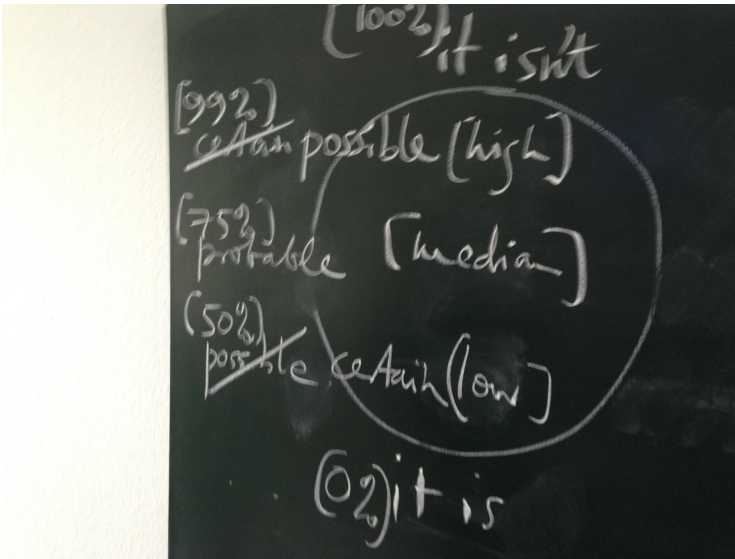 (100%) it isn't
[99%]
certain possible [high]
(75%)
probable [median]
(50%)
possible certain (low]
(0%) it is